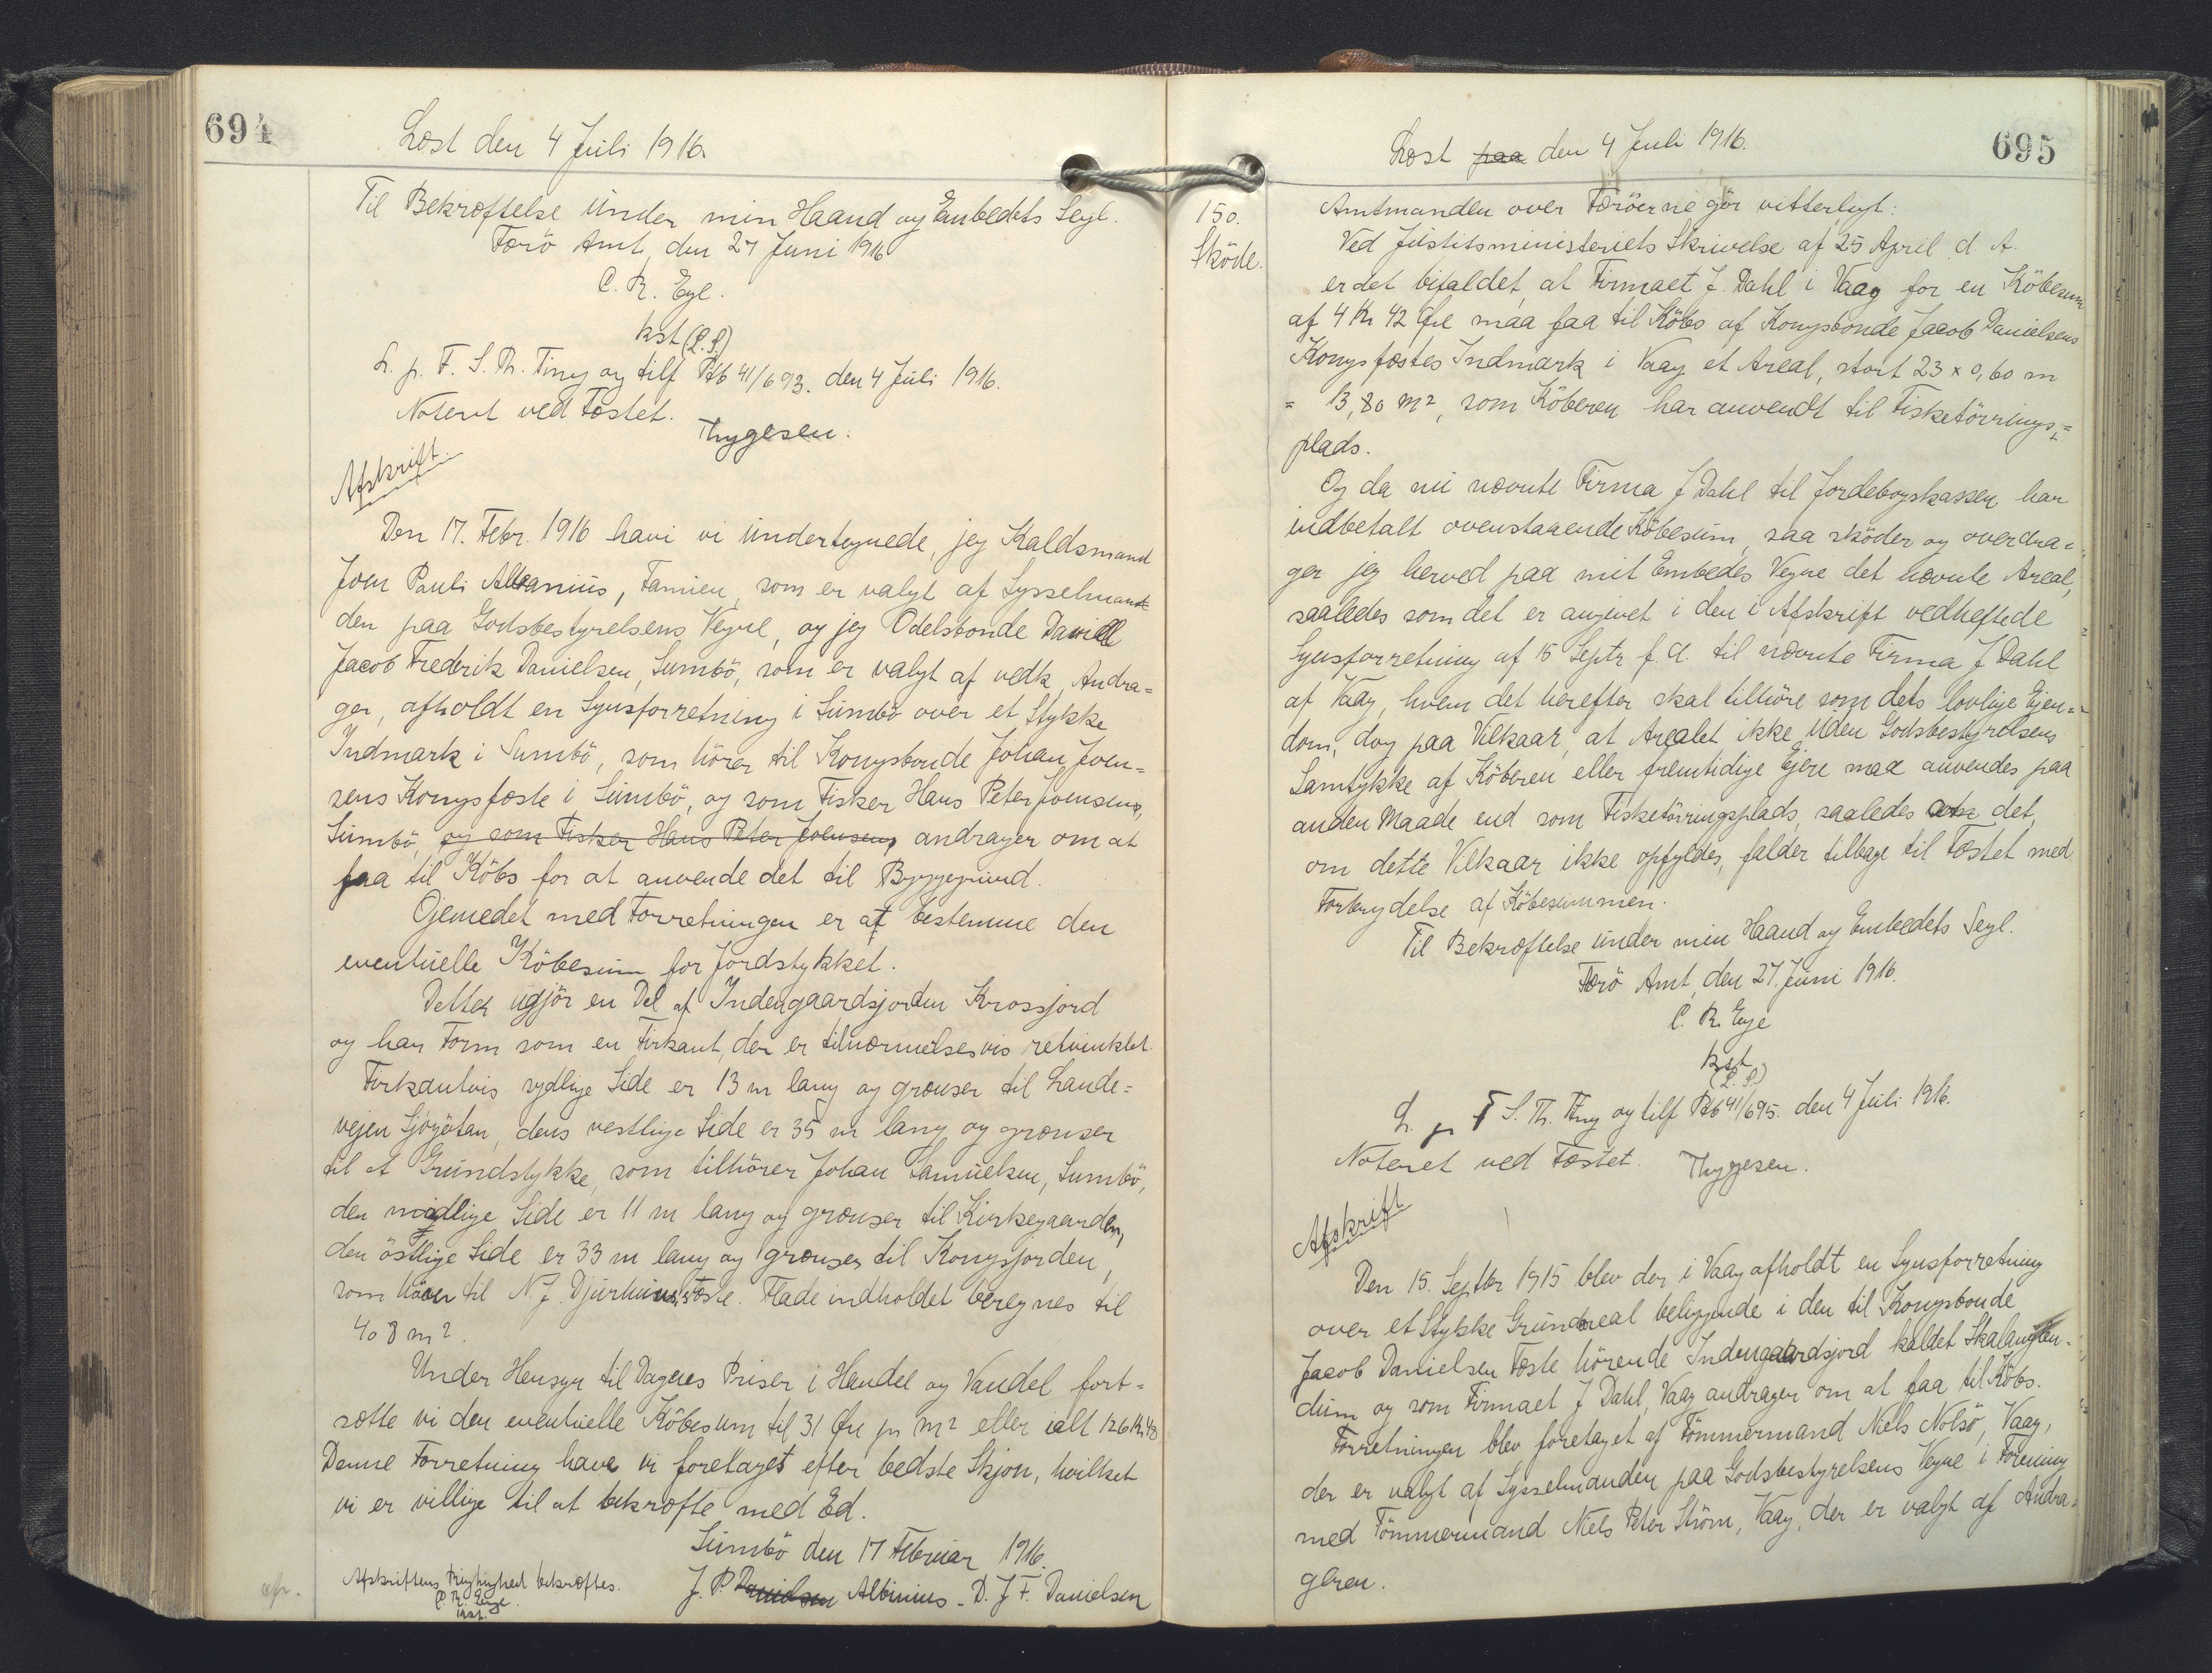 694
Læst den 4 Juli 1916.
Til Bekræftelse under min Haand og Embedets Segl.
Færö Amt, den 27 Juni 1916
C. R. Ege.
kst (L.S.)
L. p. F. S. Th. Ting og tilf Ptb 41/693. den 4 Juli 1916.
Noteret ved Fæstet.
Thygesen.
Afskrift.
Den 17. Febr. 1916 have vi undertegnede, jeg Kaldsmand
Joen Pauli Albanius, Famien, som er valgt af Sysselman-
den paa Godsbestyrelsens Vegne, og jeg Odelsbonde Daniell
Jacob Frederik Danielsen, Sumbö, som er valgt af vedk. Andra=
ger, afholdt en Synsforretning i Sumbö over et Stykke
Indmark i Sumbö, som hörer til Kongsbonde Johan Joen=
sens Kongsfæste i Sumbö, og som Fisker Hans Peter Joensen,
Sumbö, og som Fisker Hans Peter Joensen, andrager om at
faa til Köbs for at anvende det til Byggegrund.
Öjemedet med Forretningen er at bestemme den
eventuelle Köbesum for Jordstykket.
Dettet ugjör en Del af Indengaardsjorden Krossjord
og har Form som en Firkant, der er tilnærmelsesvis retvinklet.
Firkantvis sydlige Side er 13 m lang og grænser til Lande=
vejen Sjógötan, dens vestlige Side er 35 m lang og grænser
til et Grundstykke, som tilhörer Johan Samuelsen, Sumbö,
den nordlige Side er 11 m lang og grænser til Kirkegaarden,
den östlige Side er 33 m lang og grænser til Kongsjorden,
som hörer til N. J. Djurhuus's Fæste. Fladeindholdet beregnes til
408 m².
Under Hensyn til Dagens Priser i Handel og Vandel fort=
sætte vi den eventuelle Köbesum til 31 Øre pr m² eller ialt 126 Kr 48
Denne Forretning have vi foretaget efter bedste Skjön, hvilket
vi er villige til at bekræfte med Ed.
Sumbö den 17 Februar 1916.
J. P. Danielsen Albinius - D. J. F. Danielsen
Afskriftens Rigtighed bekræftes.
C. R. Eege.
kst.
695
Læst paa den 4 Juli 1916.
150.
Sköde.
Amtmanden over Færöerne gör vitterligt:
Ved Justitsministeriets Skrivelse af 25 April d. A.
er det bifaldet, at Firmaet J. Dahl i Vaag for en Köbesum
af 4 Kr 42 Øre maa faa til Köbs af Kongsbonde Jacob Danielsens
Kongsfæstes Indmark i Vaag et Areal, stort 23 x 0,60 m
= 13,80 m², som Köberen har anvendt til Fisketörrings=
plads.
Og da nu nævnte Firma J Dahl til Jordebogskassen har
indbetalt ovenstaaende Köbesum, saa sköder og overdra=
ger jeg herved paa mit Embedes Vegne det nævnte Areal,
saaledes som det er angivet i den i Afskrift vedheftede
Synsforretning af 15 Septr f. A. til nævnte Firma J Dahl
af Vaag, hvem det herefter skal tilhöre som dets lovlige Ejen=
dom, dog paa Vilkaar, at Arealet ikke uden Godsbestyrelsens
Samtykke af Köberen eller fremtidige Ejere maa anvendes paa
anden Maade end som Fisketörringsplads, saaledes at det,
om dette Vilkaar ikke opfyldes, falder tilbage til Fæstet med
Forbrydelse af Köbesummen.
Til Bekræftelse under min Haand og Embedets Segl.
Færö Amt, den 27. Juni 1916.
C. R. Eege
kst
(L.S.)
L. p. F S. Th. Ting og tilf Ptb 41/695. den 4 Juli 1916.
Noteret ved Fæstet. Thygesen.
Afskrift
Den 15. Septbr 1915 blev der i Vaag afholdt en Synsforretning
over et Stykke Grundareal beliggende i den til Kongsbonde
Jacob Danielsen Fæste hörende Indengaardsjord kaldet
dum og som Firmaet J Dahl, Vaag andrager om at faa til Köbs.
Forretningen blev foretaget af Tömmermand Niels Nolsö, Vaag,
der er valgt af Sysselmanden paa Godsbestyrelsens Vegne i Forening
med Tömmermand Niels Peter Ström, Vaag, der er valgt af Andra=
geren.